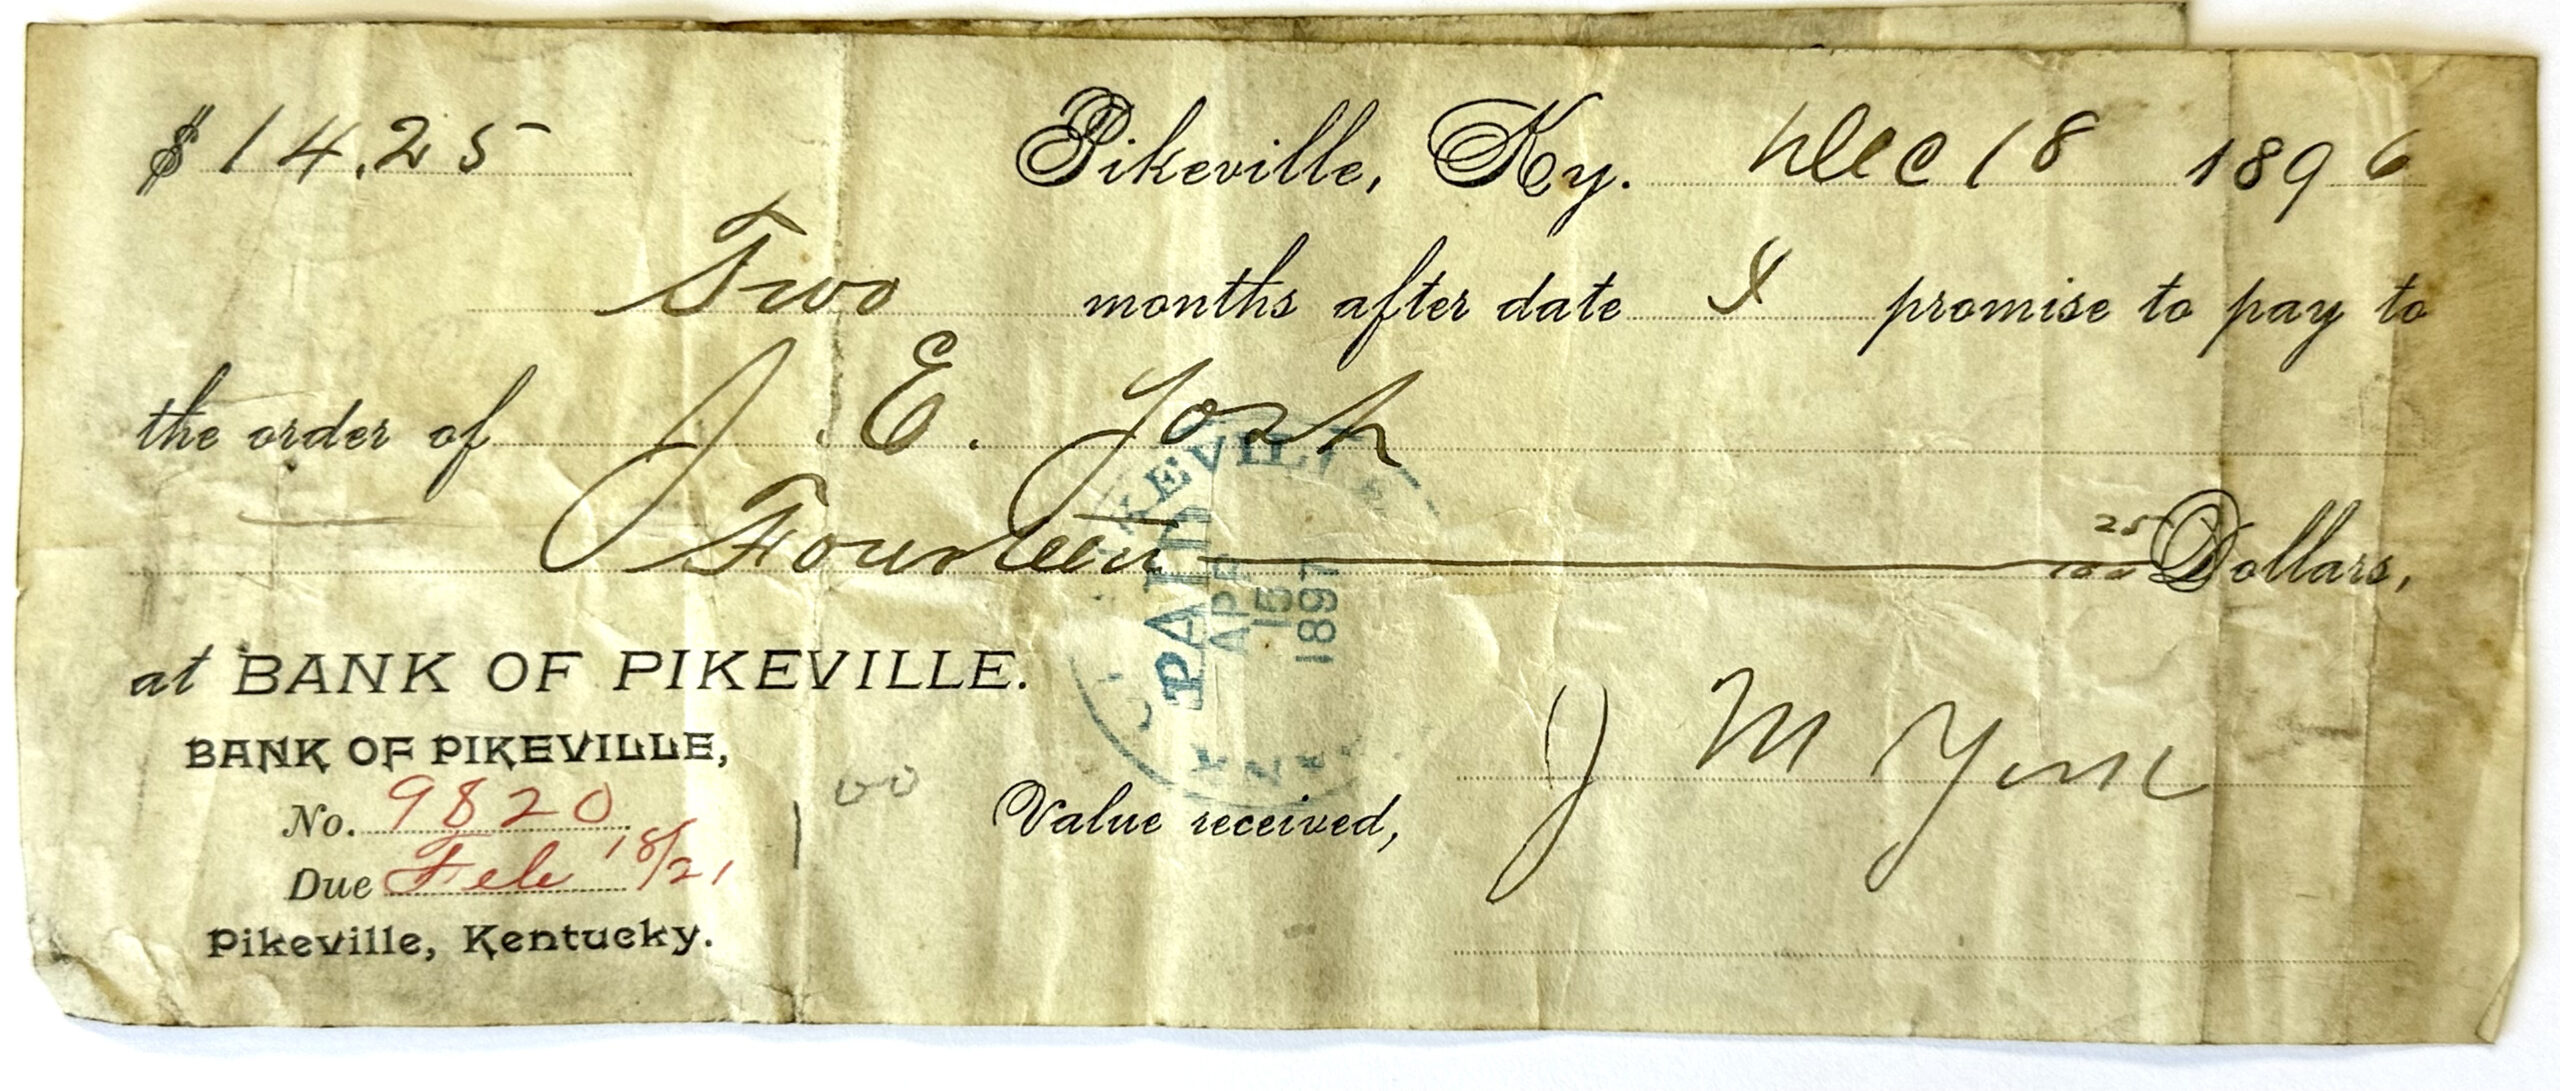 $14.25 Pikeville, Ky. Dec 18 1896
Two months after date I promise to pay to
the order of J. E. Yost
Fourteen 25/100 Dollars,
at BANK OF PIKEVILLE.
BANK OF PIKEVILLE,
No. 9820
Due Feb 18/21
Pikeville, Kentucky.
1 00
Value received,
J M York
PIKEVILLE
PAID
APR
15
1897
KY.